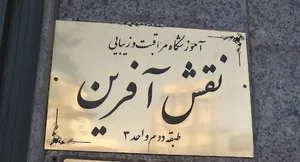 آموزشگاه مراقبت و زیبایی
نقش آفرین
طبقه دوم واحد ۳